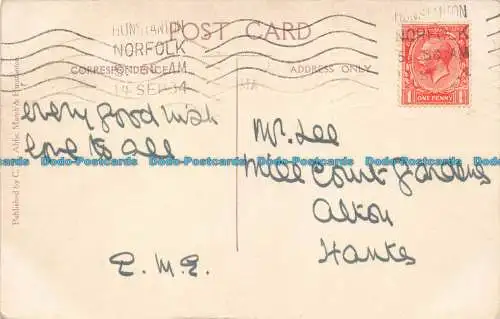 POST CARD
HUNSTANTON
NORFOLK
AM
14 SEP 34
HUNSTANTON
NORFOLK
AM
CORRESPONDENCE
ADDRESS ONLY
ONE PENNY
Every good wish
love to all
E. M. E.
Mr. Lee
Mill Court Gardens
Alton
Hants
Published by C.
March
Dodo-Postcards Dodo-Postcards Dodo-Postcards Dodo-Postcards Dodo-Postcards